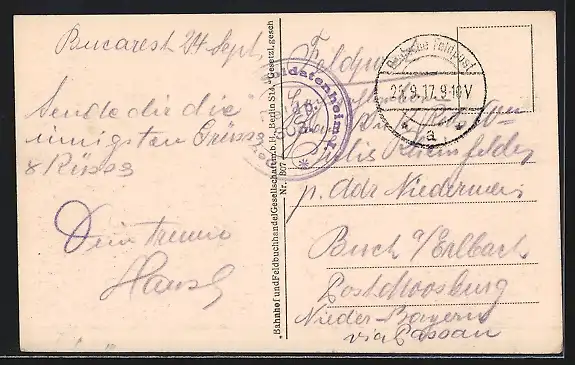 Bucarest 24 Sept.
Sende dir die
innigsten Grüsse
& Küsse
Dein treuer
Hansl
Bahnhof und Feldbuchhandel Gesellschaften b. H., Berlin S14. Gesetzl. gesch
Nr. B07
Feldpost
Soldatenheim
Deutsche Feldpost
25.9.17. 9-10V
a
Julis Rheinfelder
p. adr Niedermeier
Buch a/Erlbach
Post Moosburg
Nieder-Bayern
via Passau